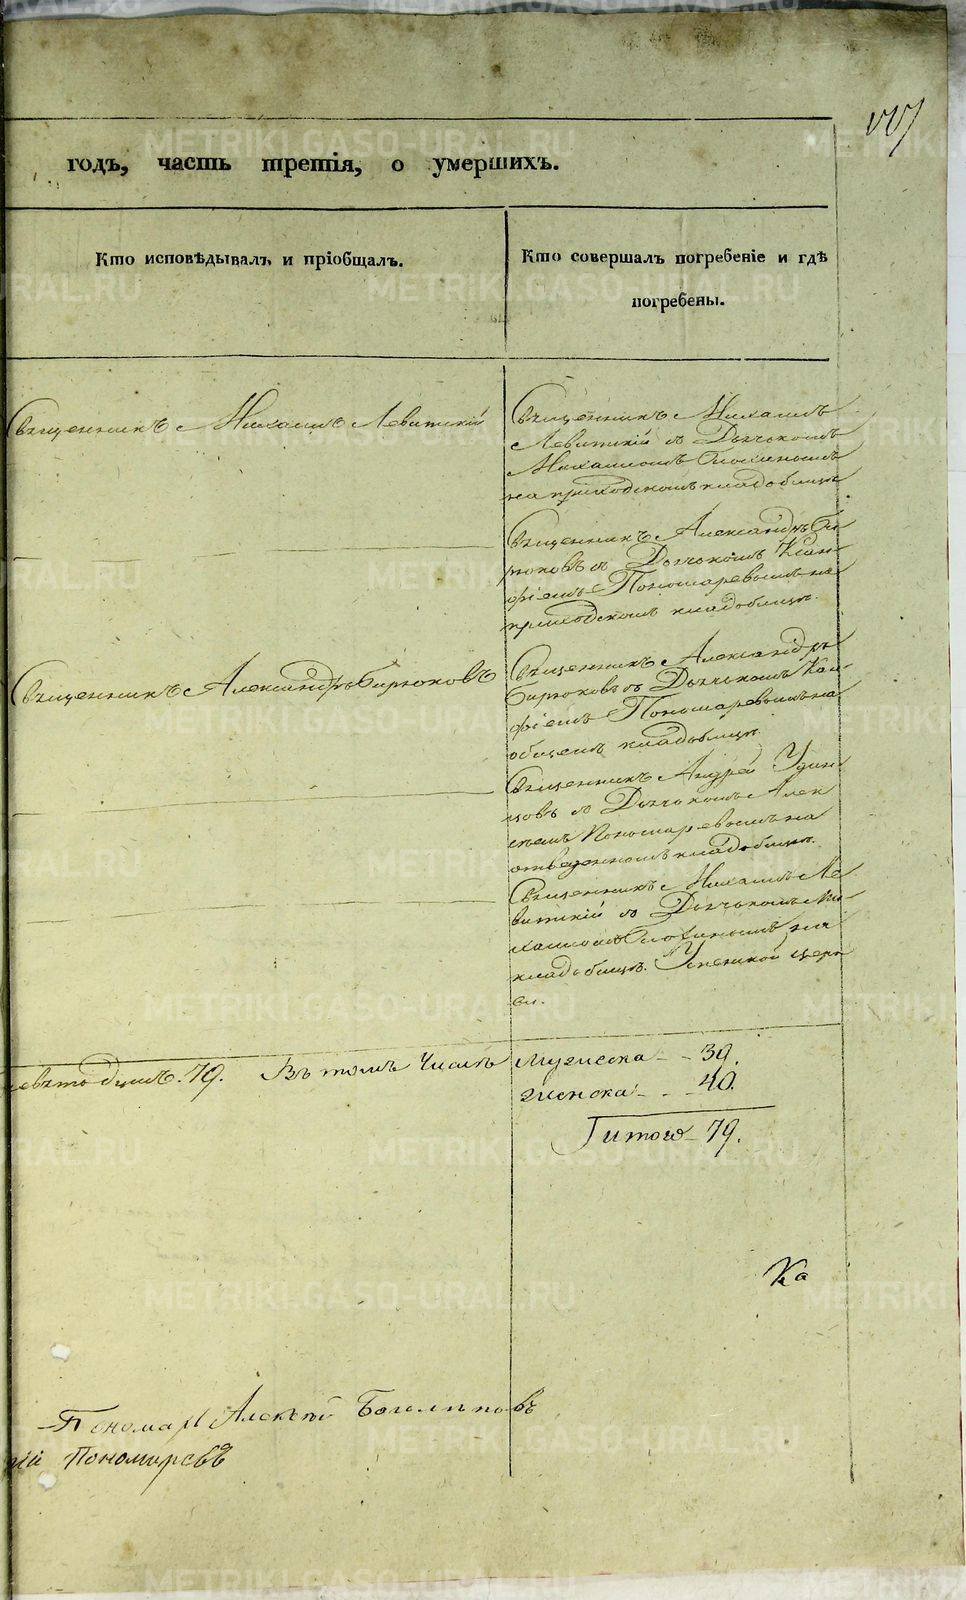 годъ, часть третія, о умершихъ.
Кто исповѣдывалъ и пріобщалъ.
Кто совершалъ погребеніе и гдѣ
погребены.
Священникъ Михаилъ Левитскій
Священникъ Михаилъ
Левитскій съ Дьячкомъ
Михаиломъ
на приходскомъ кладбищѣ
Священникъ Александръ Би
рюковъ съ Дьячкомъ
Пономаревымъ на
приходскомъ кладбищѣ.
Священникъ Александръ Бирюковъ
Священникъ Александръ
Бирюковъ съ Дьячкомъ
Пономаревымъ на
общемъ кладбищѣ
Священникъ Андрей Удин
цовъ съ Дьячкомъ Алек
Пономаревымъ на
отведенномъ кладбищѣ.
Священникъ Михаилъ Ле
витскій съ Дьячкомъ Ми
хаиломъ на
кладбищѣ. Успенской церк
ви.
79. Въ томъ числѣ
мужеска - - 39.
женска - - - 40.
Итого - 79.
Ка
Пономарь Алексѣй
Пономаревъ
METRIKI.GASO-URAL.RU